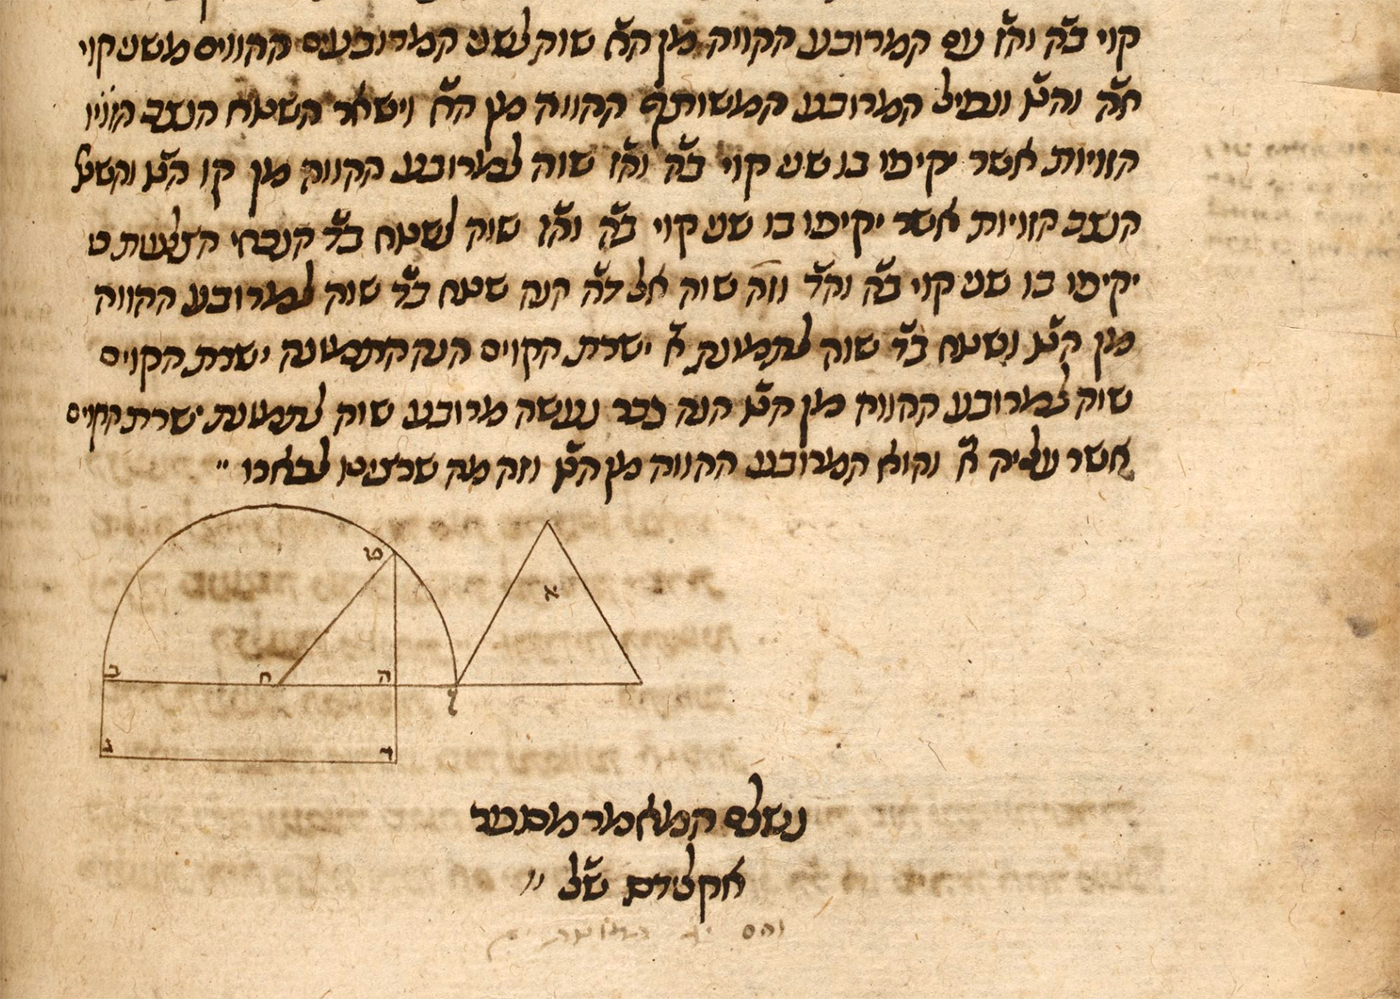 קוי ב̇ה̇ וה̇ז̇ עם המרובע ההווה מן ה̇ח̇ שוה לשני המרובעים ההווים משני קוי
ח̇ה̇ וה̇ט̇ ונפיל המרובע המשותף ההווה מן ה̇ח̇ וישאר השטח הנצב הזויו
הזויות אשר יקיפו בו שני קוי ב̇ה̇ וה̇ז̇ שוה למרובע ההווה מן קו ה̇ט̇ והשטח
הנצב הזויות אשר יקיפו בו שני קוי ב̇ה̇ וה̇ז̇ שוה לשטח ב̇ד̇ הנכחי הצלעות
יקיפו בו שני קוי ב̇ה̇ וה̇ד̇ וז̇ה̇ שוה אל ד̇ה̇ הנה שטח ב̇ד̇ שוה למרובע ההווה
מן ה̇ט̇ ושטח ב̇ד̇ שוה לתמונת א̇ ישרת הקוים הנה התמונה ישרת הקוים
שוה למרובע ההווה מן ה̇ט̇ הנה כבר נעשה מרובע שוה לתמונת ישרת הקוים
אשר עליה א̇ והוא המרובע ההווה מן ה̇ט̇ וזה מה שרצינו לבארו
ט
א
ב ח ה
ז
ג ד
נשלם המאמר מספר
אקלידס ש̇ל̇